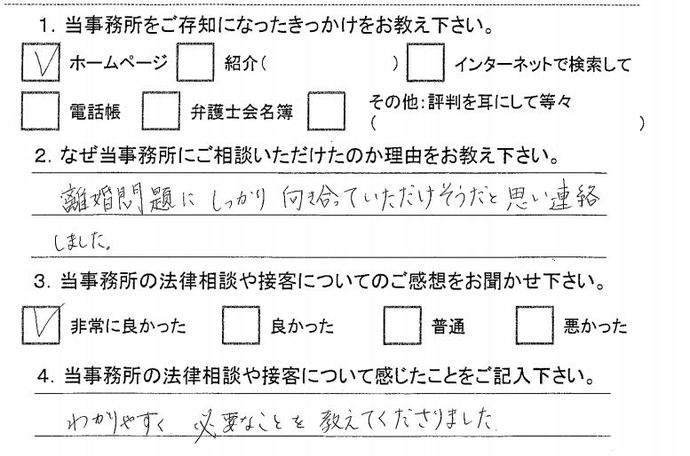 1. 当事務所をご存知になったきっかけをお教え下さい。
ホームページ 紹介( ) インターネットで検索して
電話帳 弁護士会名簿 その他:評判を耳にして等々
( )
2. なぜ当事務所にご相談いただけたのか理由をお教え下さい。
離婚問題に しっかり 向き合っていただけそうだと思い連絡
しました。
3. 当事務所の法律相談や接客についてのご感想をお聞かせ下さい。
非常に良かった 良かった 普通 悪かった
4. 当事務所の法律相談や接客について感じたことをご記入下さい。
わかりやすく 必要なことを 教えてくださりました